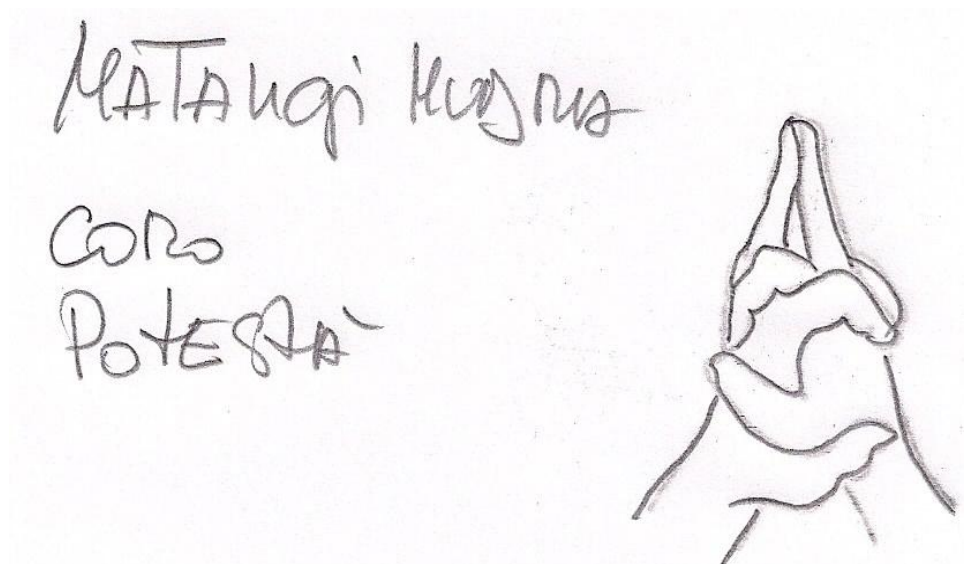 MATANGI MUDRA
CORO
POTESTÀ